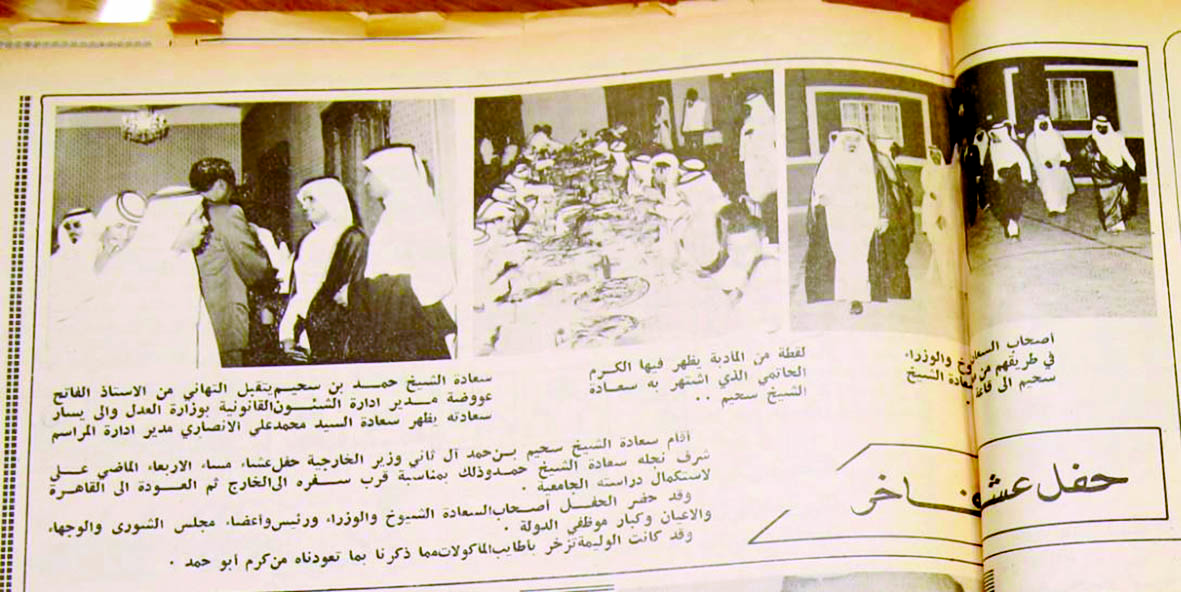 حفل عشاء فاخر
أصحاب السعادة الشيوخ والوزراء
في طريقهم من
سحيم الى قاعة
سعادة الشيخ
لقطة من المأدبة يظهر فيها الكرم
الحاتمي الذي اشتهر به سعادة
الشيخ سحيم ..
سعادة الشيخ حمد بن سحيم يتقبل التهاني من الاستاذ الفاتح
عووضة مدير ادارة الشئون القانونية بوزارة العدل والى يسار
سعادته يظهر سعادة السيد محمد علي الأنصاري مدير ادارة المراسم
أقام سعادة الشيخ سحيم بن حمد آل ثاني وزير الخارجية حفل عشاء مساء الاربعاء الماضي على
شرف نجله سعادة الشيخ حمد وذلك بمناسبة قرب سفره الى الخارج ثم العودة الى القاهرة
لاستكمال دراسته الجامعية .
وقد حضر الحفل أصحاب السعادة الشيوخ والوزراء ورئيس وأعضاء مجلس الشورى والوجهاء
والاعيان وكبار موظفي الدولة .
وقد كانت الوليمة تزخر بأطايب المأكولات مما ذكرنا بما تعودناه من كرم أبو حمد .